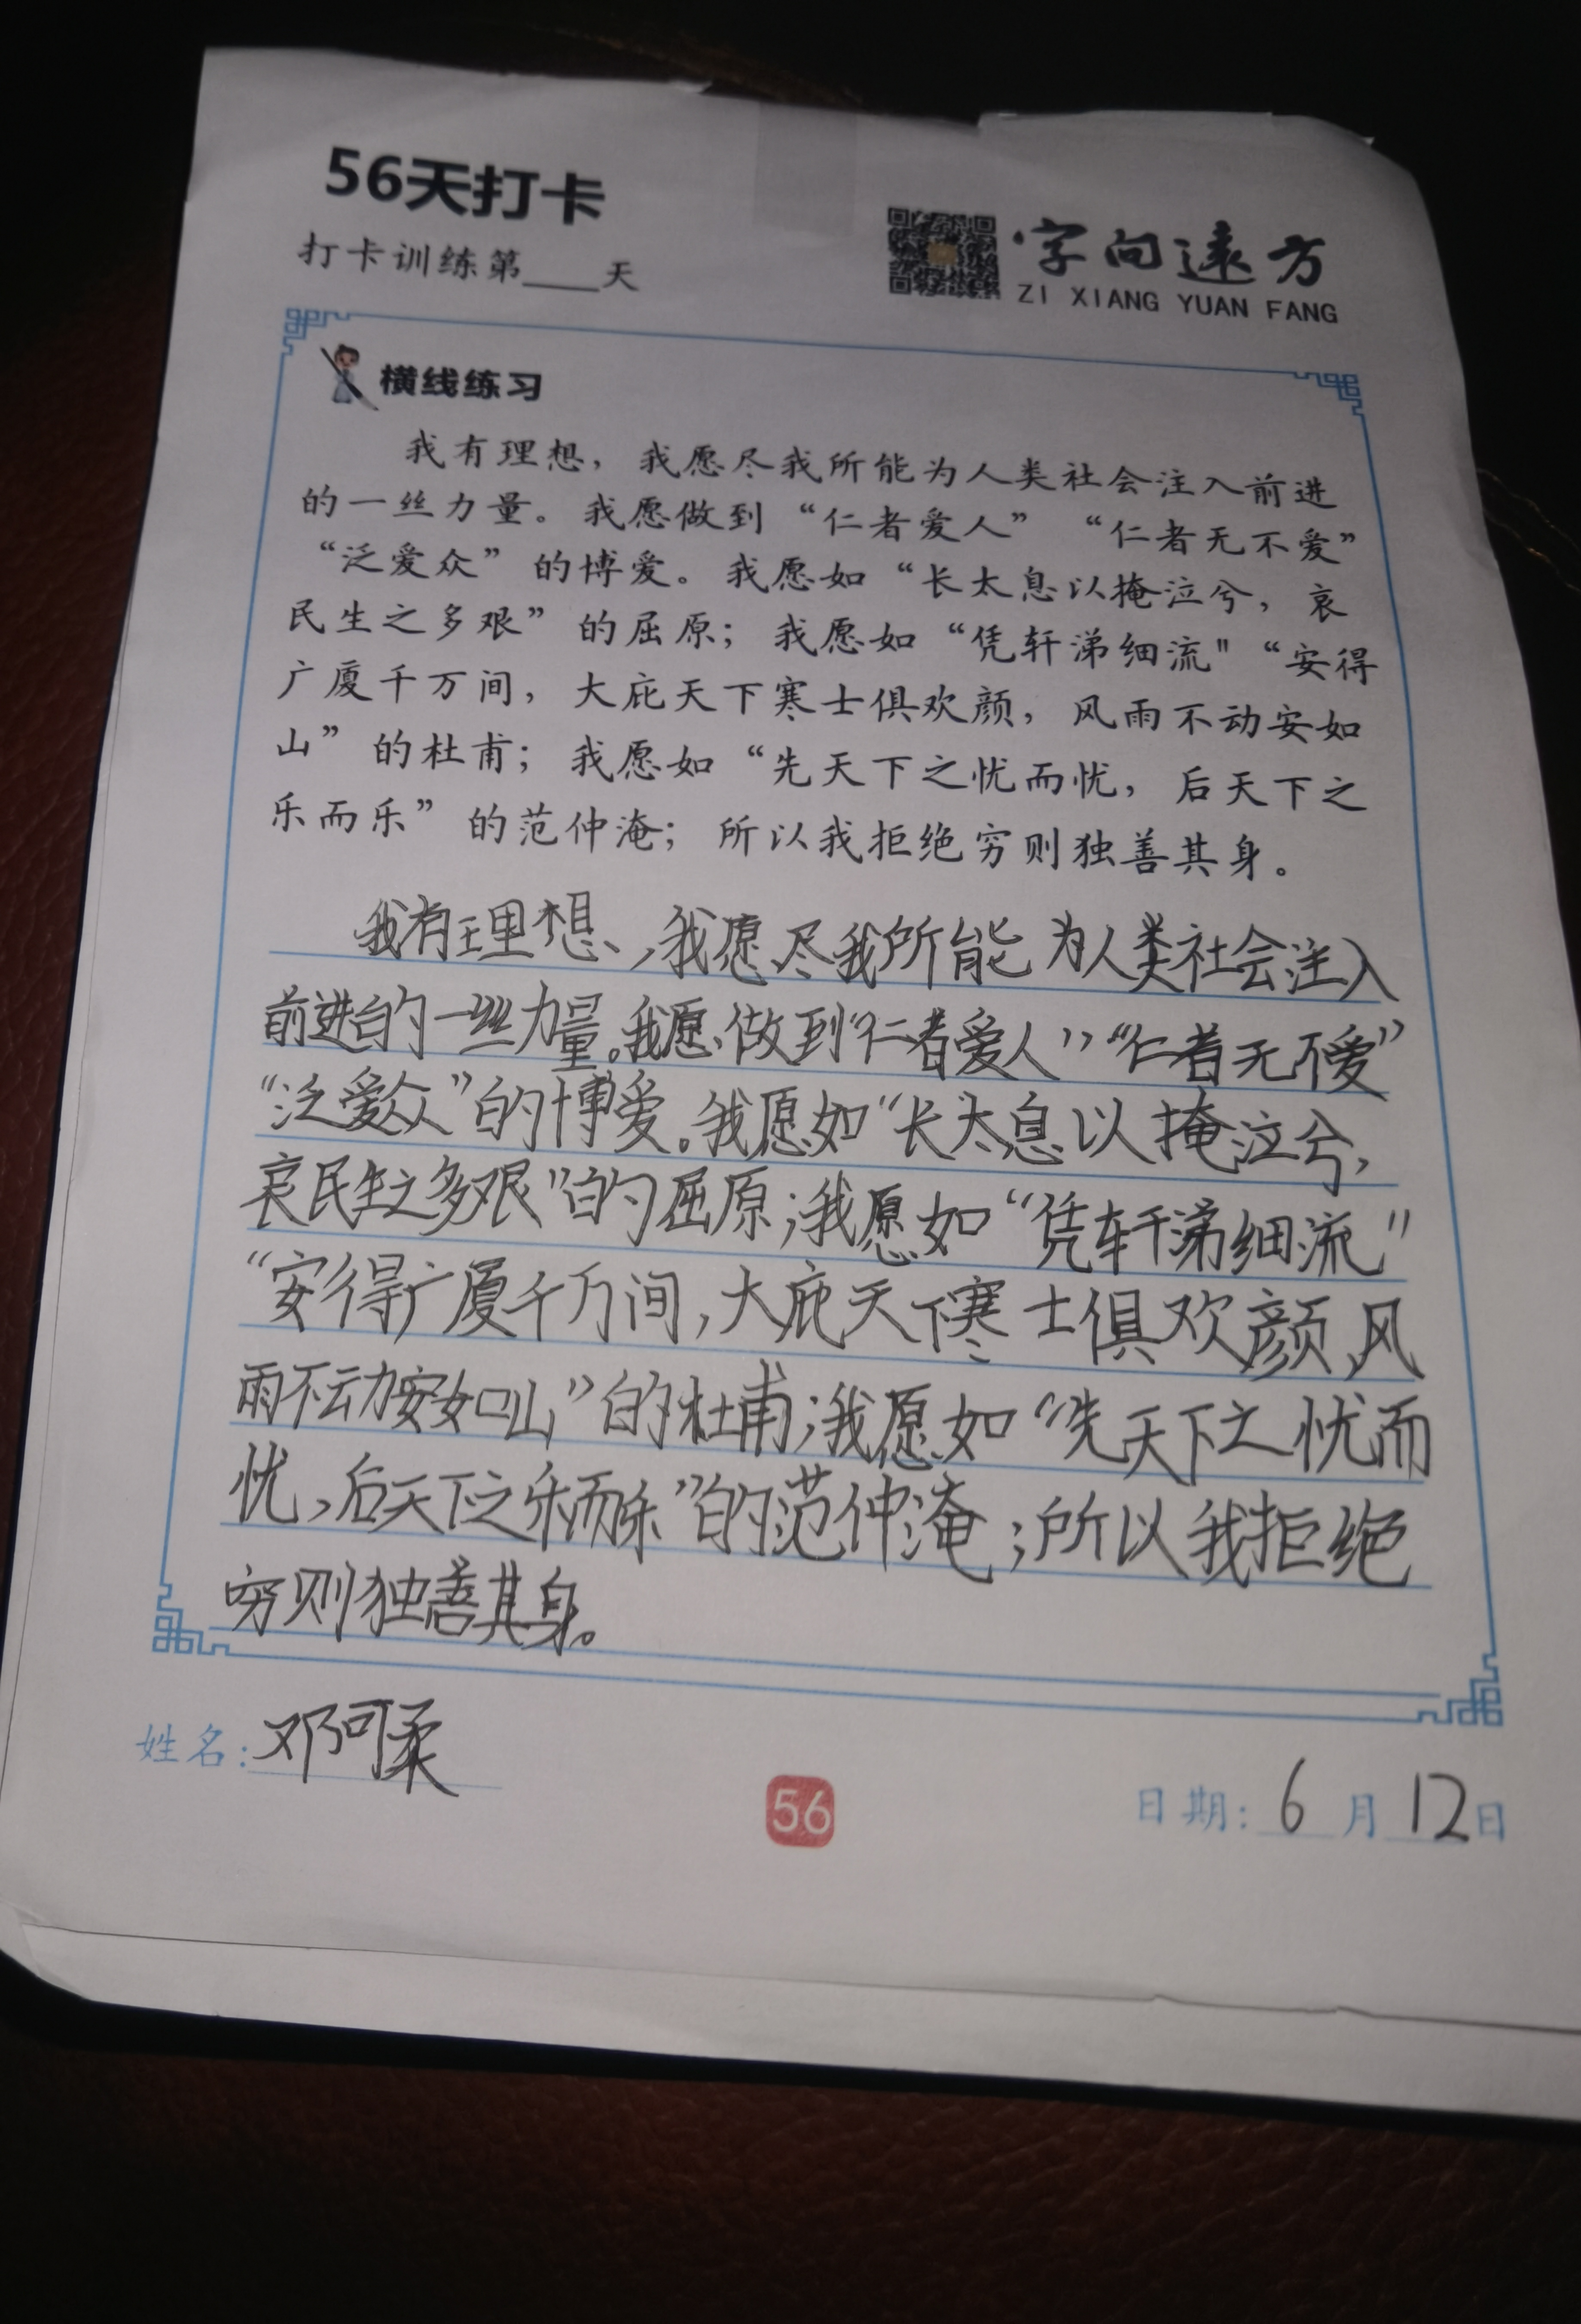 56天打卡
打卡训练第____天
字向遠方
ZI XIANG YUAN FANG
横线练习
我有理想，我愿尽我所能为人类社会注入前进
的一丝力量。我愿做到“仁者爱人”“仁者无不爱”
“泛爱众”的博爱。我愿如“长太息以掩泣兮，哀
民生之多艰”的屈原；我愿如“凭轩涕细流"“安得
广厦千万间，大庇天下寒士俱欢颜，风雨不动安如
山”的杜甫；我愿如“先天下之忧而忧，后天下之
乐而乐”的范仲淹；所以我拒绝穷则独善其身。
我有理想，我愿尽我所能为人类社会注入
前进的一丝力量。我愿做到“仁者爱人”“仁者无不爱”
“泛爱众”的博爱。我愿如“长太息以掩泣兮，
哀民生之多艰”的屈原；我愿如“凭轩涕细流”
“安得广厦千万间，大庇天下寒士俱欢颜，风
雨不动安如山”的杜甫；我愿如“先天下之忧而
忧，后天下之乐而乐”的范仲淹；所以我拒绝
穷则独善其身。
姓名：邓可柔
56
日期：6月12日